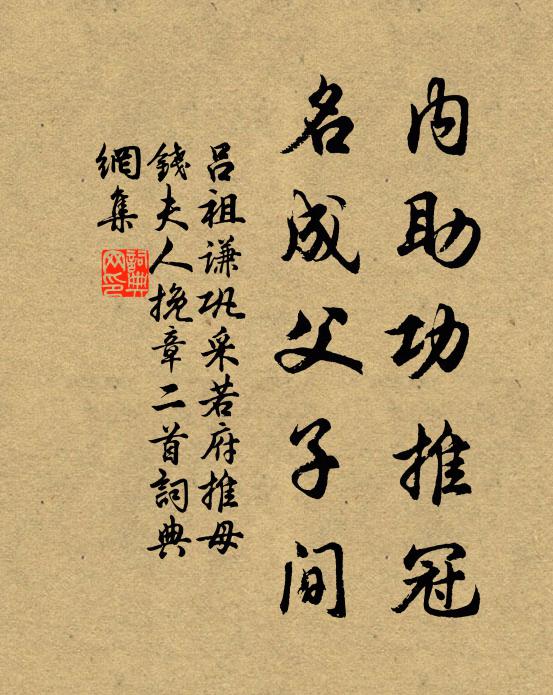 内助功推冠
名成父子间
吕祖谦巩采若府推母
錢夫人挽章二首詞典
網集
詞典
网印